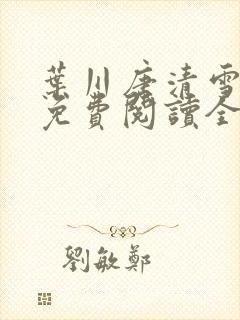 葉川唐清雪
免費閱讀全
劉敏鄭